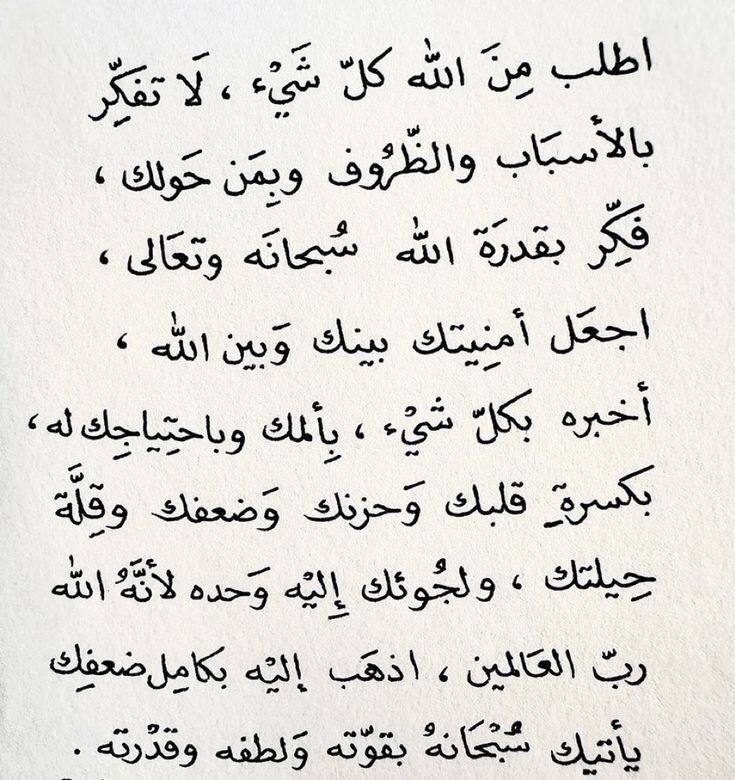 اطلب مِنَ الله كلّ شَيْء ، لَا تفكِّر
بالأسبَاب والظّرُوف وبِمَن حَولك ،
فَكِّر بقدرَة الله سُبحانَه وتعَالى ،
اجعَل أمنِيتك بينك وَبين الله ،
أخبره بكلّ شيْء ، بِألمك وباحتِياجِك له ،
بكسرةِ قلبك وَحزنك وَضعفك وقِلَّة
حِيلتك ، ولجُوئك إِليْه وَحده لأنَّهُ الله
ربّ العَالمين ، اذهَب إليْه بكامِل ضعفِك
يأتيك سُبْحَانهُ بقوّته وَلطفه وقدْرته .